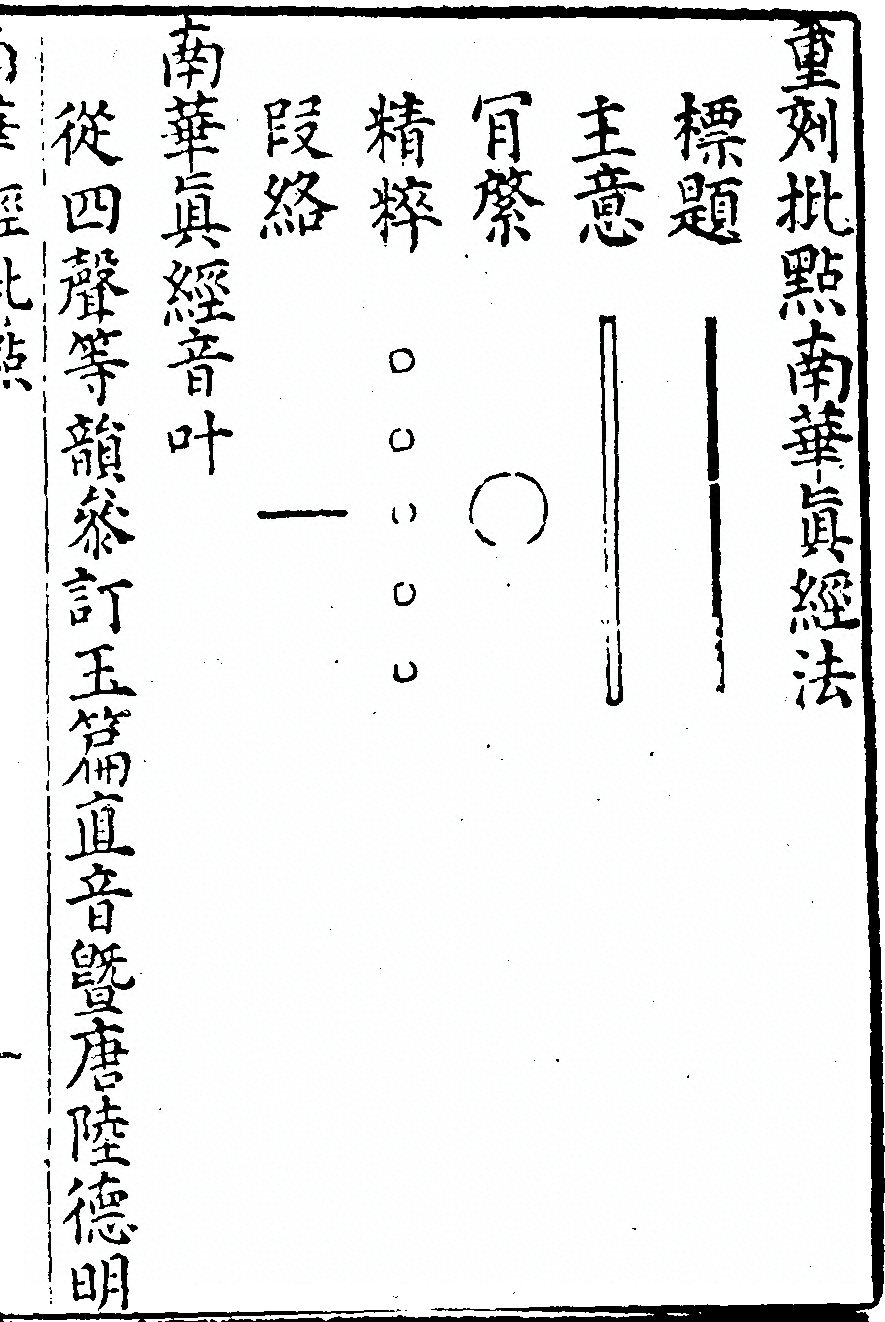 重刻批點南華眞經法
標題
主意
肎綮
精粹
段絡
南華眞經音叶
從四聲等韻叅訂玉篇直音曁唐陸德明
南華經批點